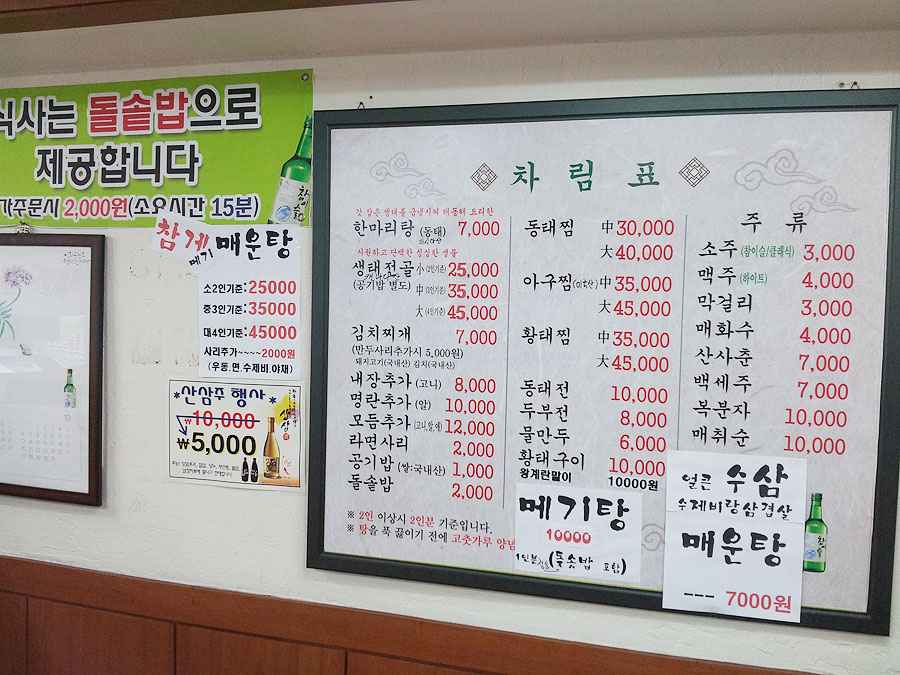 식사는 돌솥밥으로
제공합니다
가주문시 2,000원(소요시간 15분)
참게
메기 매운탕
소2인기준:25000
중3인기준:35000
대4인기준:45000
사리추가~~~~2000원
(우동.면.수제비.야채)
*산삼주 행사*
₩10,000
₩5,000
차림표
갓 잡은 생태를 급냉시켜 해동해 요리한
한마리탕 (동태) 7,000
시원하고 담백한 싱싱한 생물
생태전골 小 (2인기준) 25,000
(공기밥 별도) 中 (3인기준) 35,000
大 (4인기준) 45,000
김치찌개 7,000
(만두사리추가시 5,000원)
돼지고기(국내산) 김치(국내산)
내장추가 (고니) 8,000
명란추가 (알) 10,000
모듬추가 (고니,알,에) 12,000
라면사리 2,000
공기밥 (쌀:국내산) 1,000
돌솥밥 2,000
※ 2인 이상시 2인분 기준입니다.
※ 탕을 푹 끓이기 전에 고춧가루 양념
동태찜 中 30,000
大 40,000
아구찜 (미국산) 中 35,000
大 45,000
황태찜 中 35,000
大 45,000
동태전 10,000
두부전 8,000
물만두 6,000
황태구이 10,000
왕계란말이 10000원
메기탕
10000
1인분 (돌솟밥 포함)
주류
소주 (참이슬/클래식) 3,000
맥주 (하이트) 4,000
막걸리 3,000
매화수 4,000
산사춘 7,000
백세주 7,000
복분자 10,000
매취순 10,000
얼큰 수삼
수제비랑삼겹살
매운탕
--- 7000원